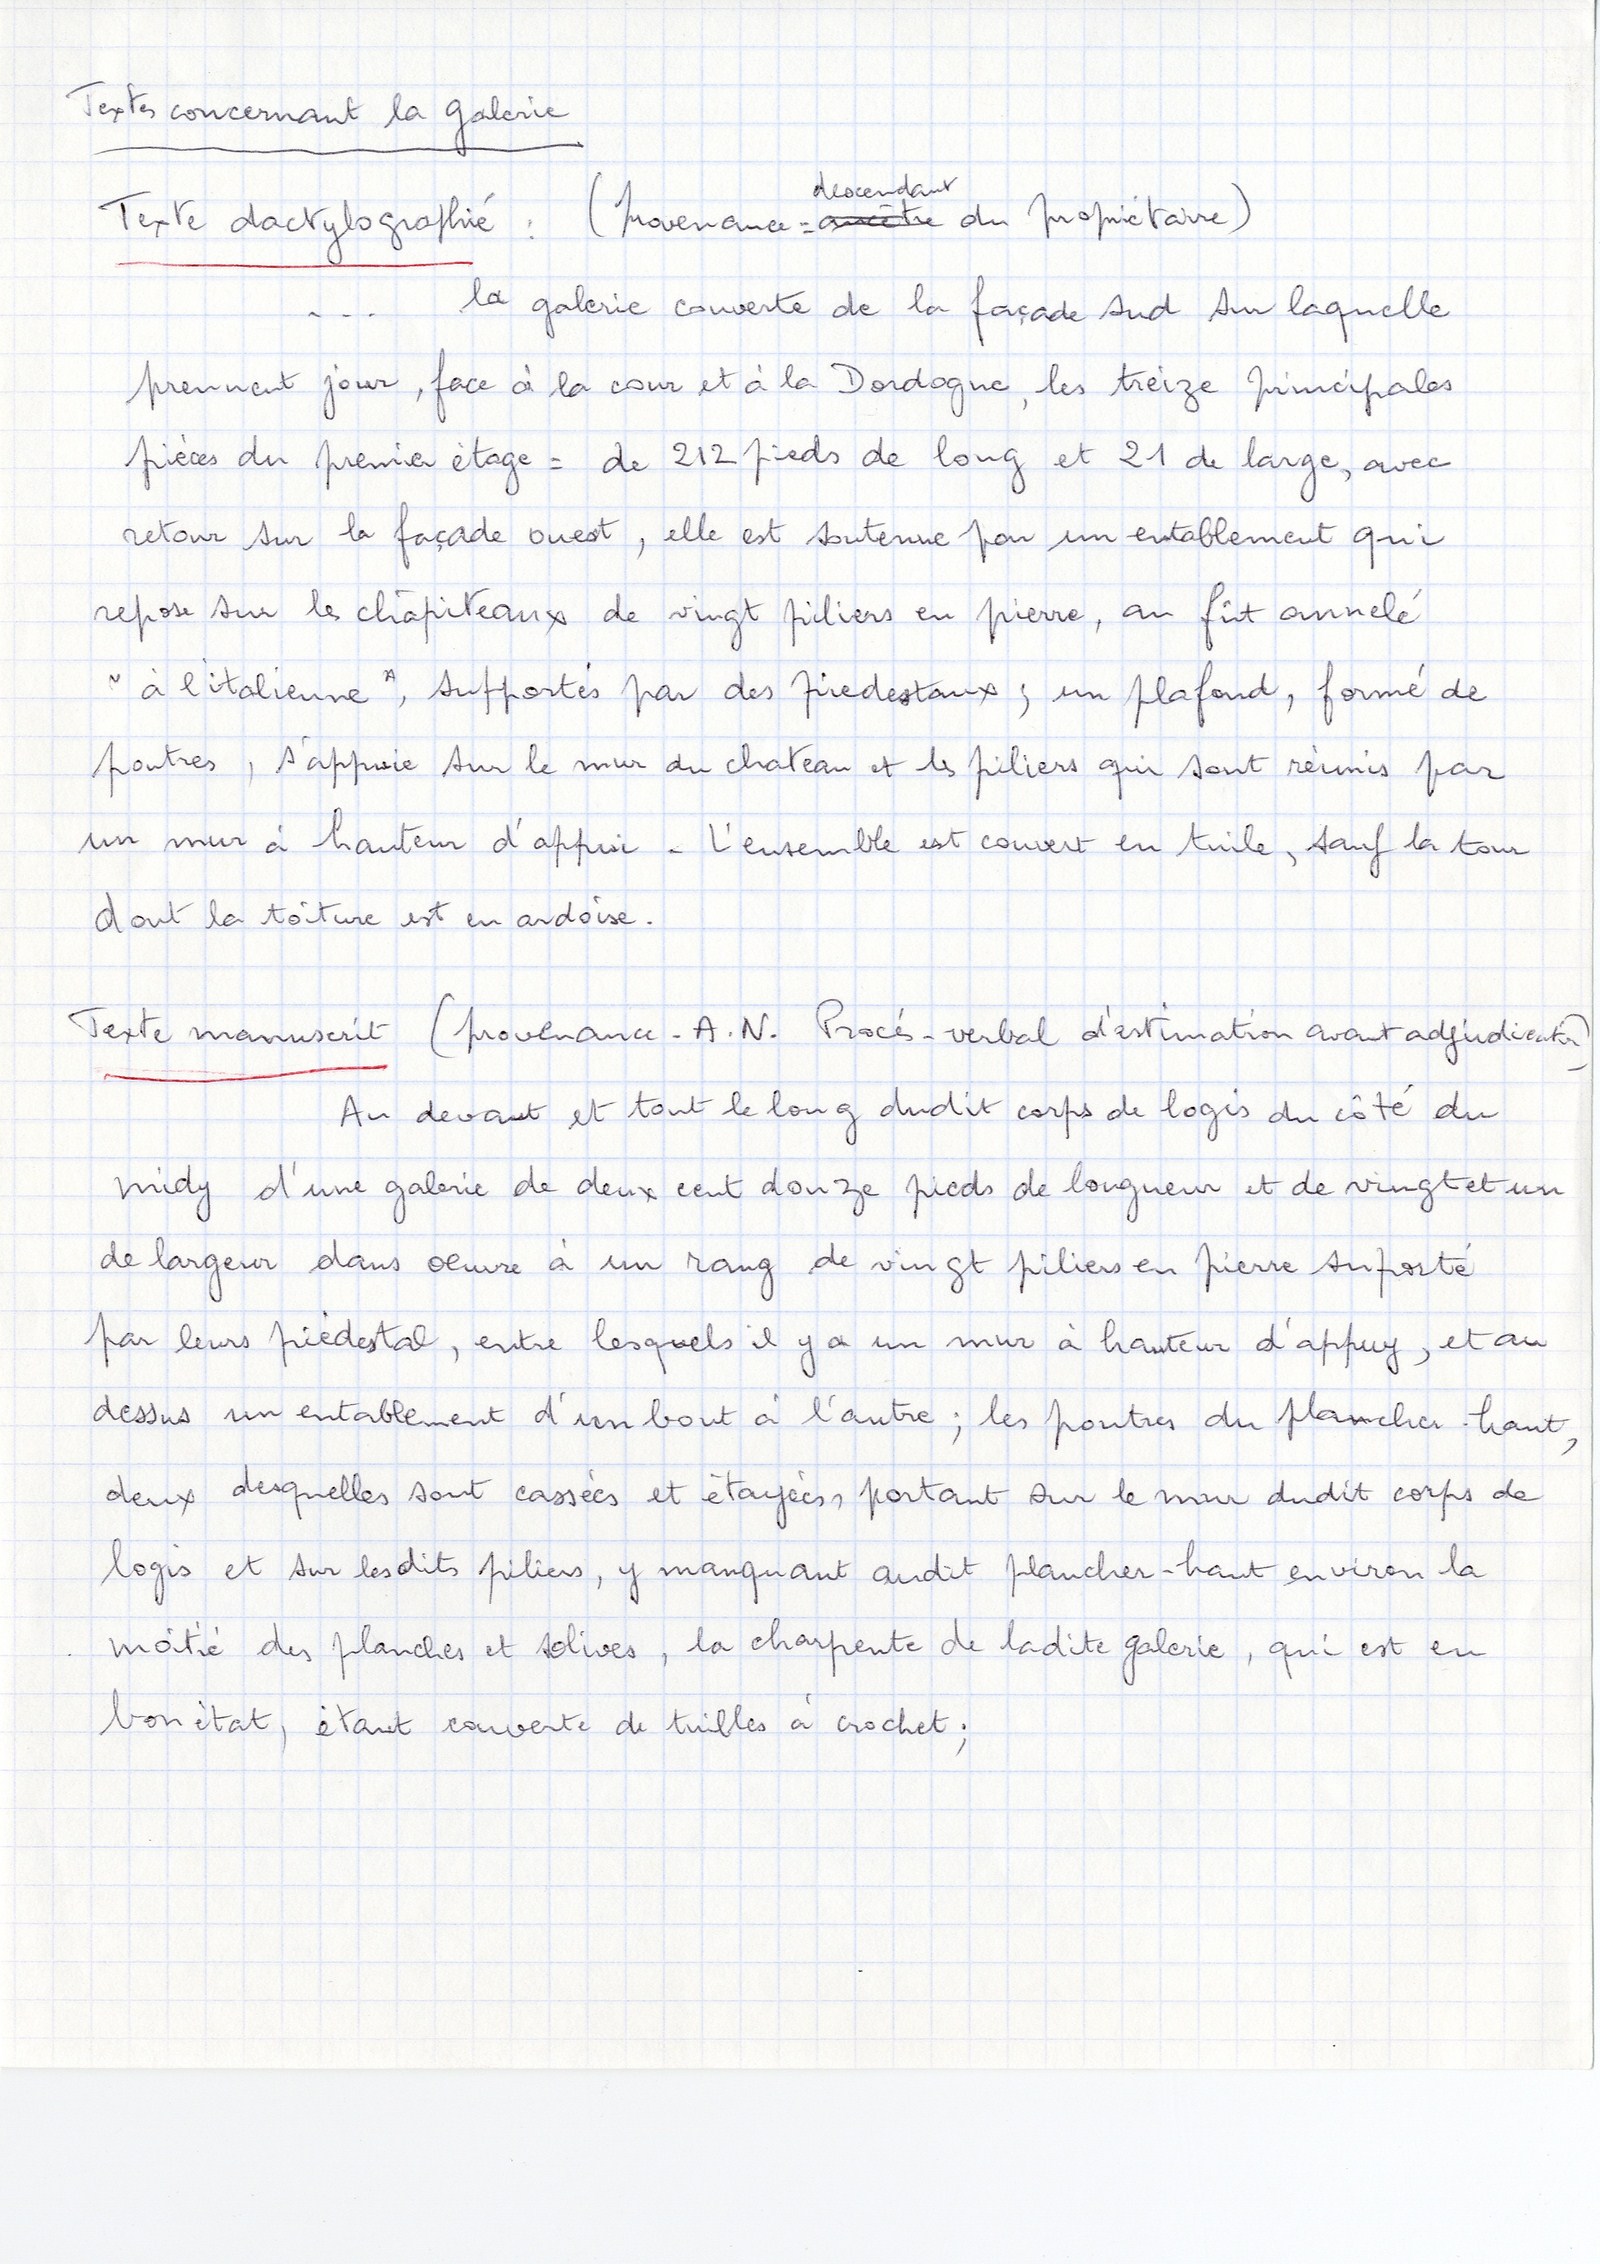 Textes concernant la galerie
Texte dactylographié : (provenance = descendant ancêtre du propriétaire)
... la galerie couverte de la façade sud sur laquelle
prennent jour, face à la cour et à la Dordogne, les treize principales
pièces du premier étage = de 212 pieds de long et 21 de large, avec
retour sur la façade ouest, elle est soutenue par un entablement qui
repose sur les chapiteaux de vingt piliers en pierre, au fût annelé
"à l'italienne", supportés par des piedestaux ; un plafond, formé de
poutres, s'appuie sur le mur du chateau et les piliers qui sont réunis par
un mur à hauteur d'appui - L'ensemble est couvert en tuile, sauf la tour
dont la toiture est en ardoise.
Texte manuscrit (provenance - A.N. Procés-verbal d'estimation avant adjudication)
Au devant et tout le long dudit corps de logis du côté du
midy d'une galerie de deux cent douze pieds de longueur et de vingt et un
de largeur dans oeuvre à un rang de vingt piliers en pierre suporté
par leurs piédestal, entre lesquels il y a un mur à hauteur d'appuy, et au
dessus un entablement d'un bout à l'autre ; les poutres du plancher-haut,
deux desquelles sont cassées et étayées, portant sur le mur dudit corps de
logis et sur lesdits piliers, y manquant audit plancher-haut environ la
moitié des planches et solives, la charpente de ladite galerie, qui est en
bon état, étant couverte de tuilles à crochet ;